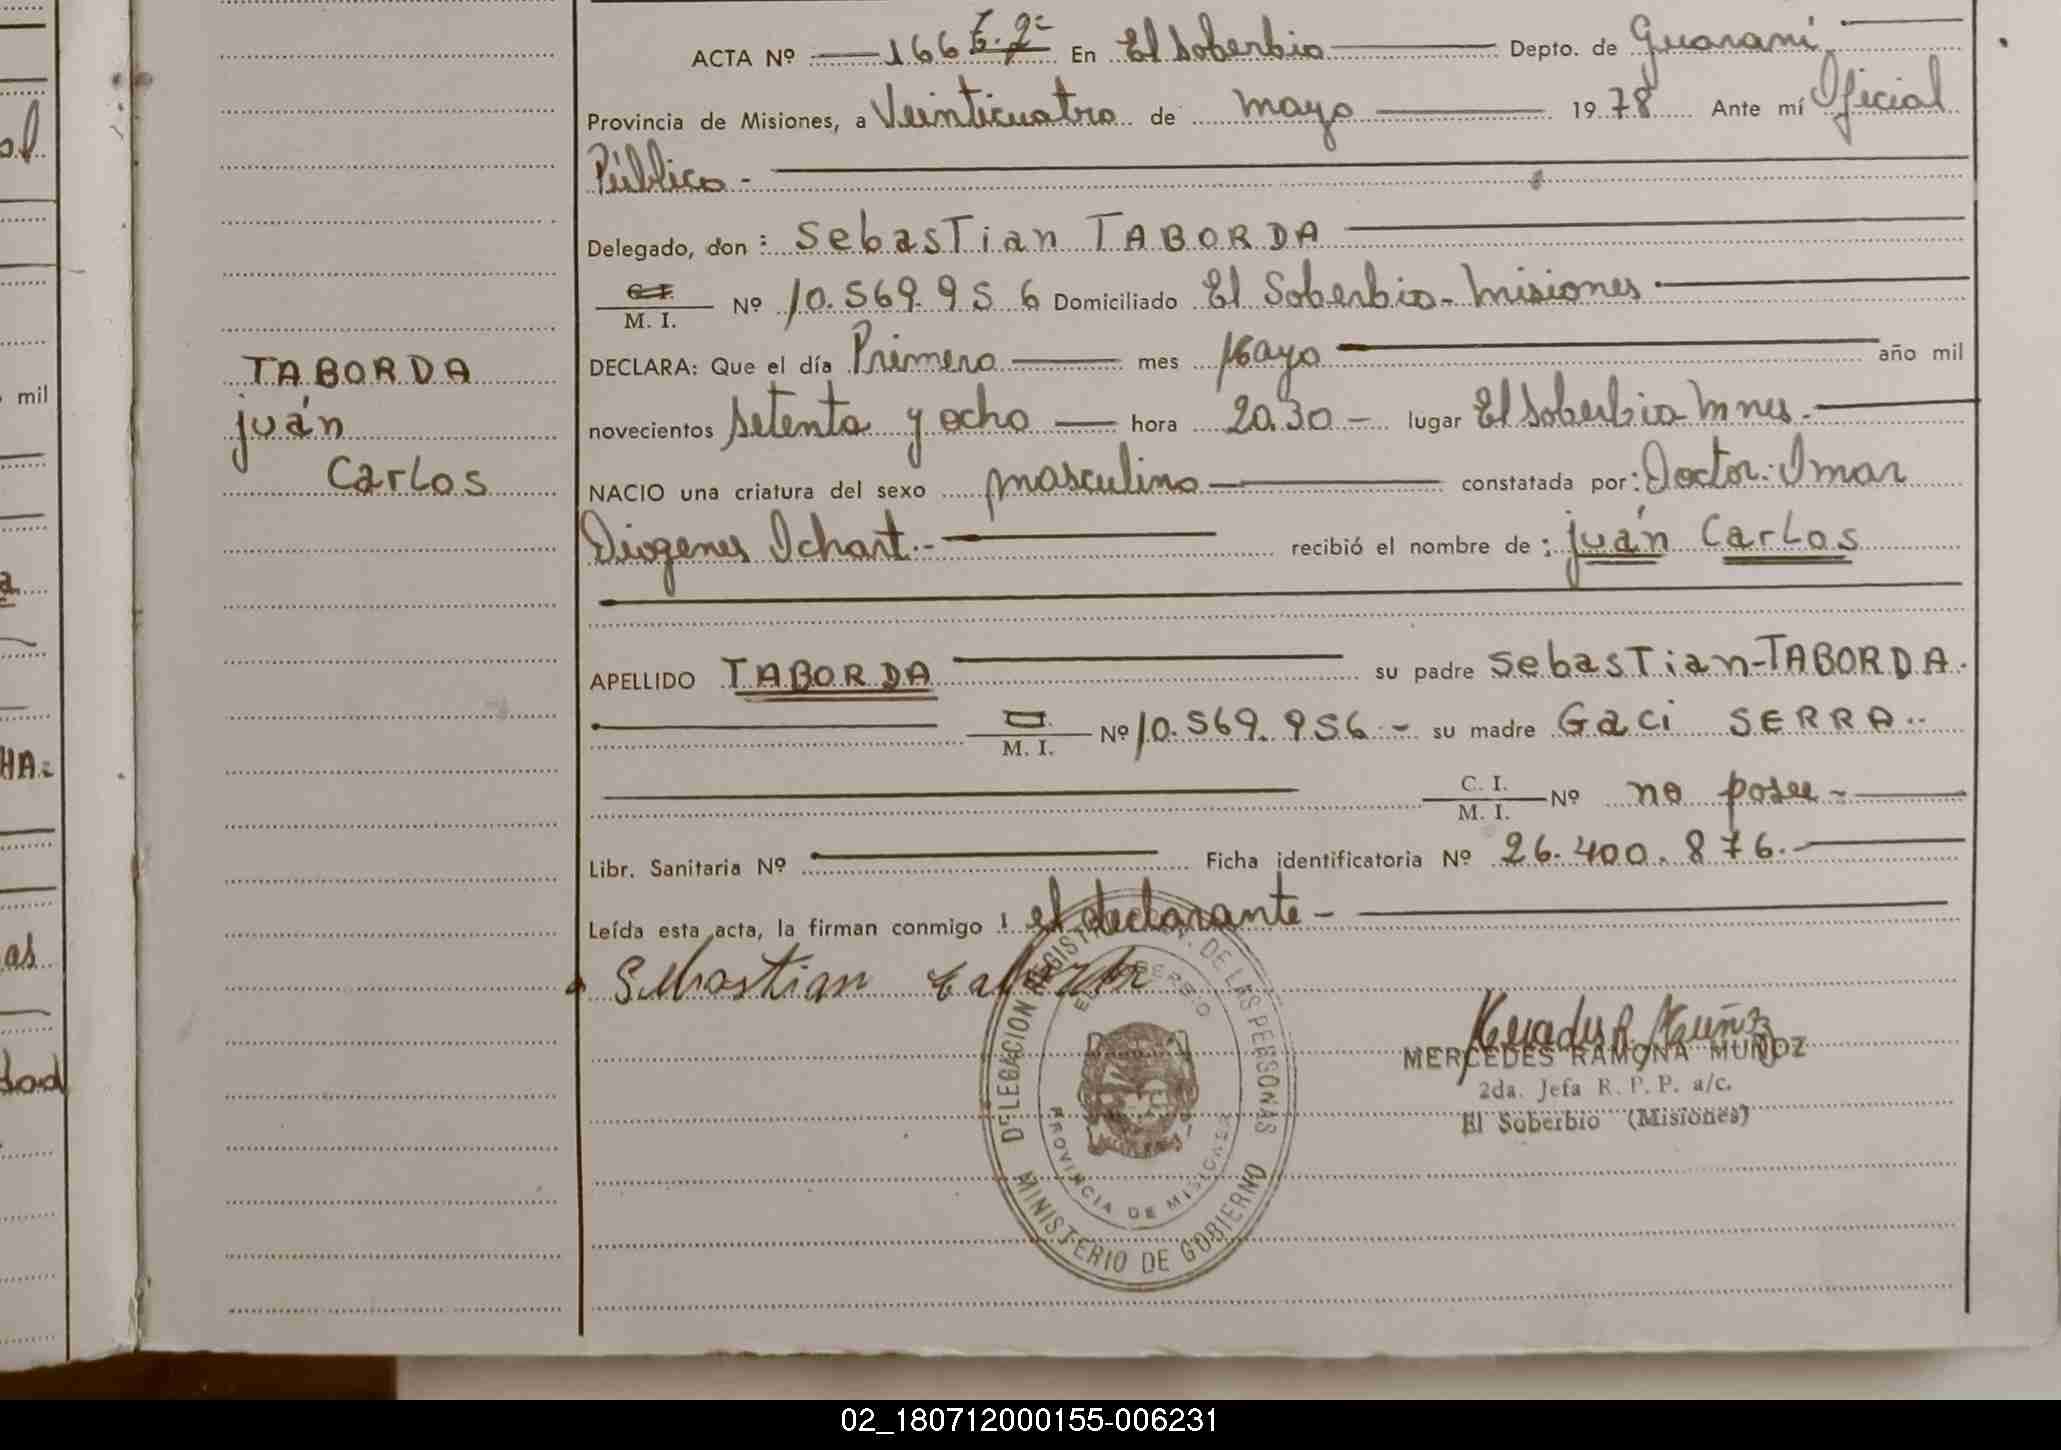 ACTA Nº 166 T. 2º En El Soberbio Depto. de Guaraní
Provincia de Misiones, a Veinticuatro de mayo 1978 Ante mí Oficial
Público -
Delegado, don : Sebastian TABORDA
C. I. / M. I. Nº 10.569.956 Domiciliado El Soberbio - Misiones
DECLARA: Que el día Primero mes Mayo año mil
novecientos setenta y ocho hora 20.30 - lugar El Soberbio Mnes.
NACIO una criatura del sexo masculino constatada por: Doctor: Omar
Diogenes Ichart.- recibió el nombre de : juán Carlos
APELLIDO TABORDA su padre Sebastian-TABORDA.
M. I. Nº 10.569.956.- su madre Gaci SERRA..
C. I. / M. I. Nº no posee -
Libr. Sanitaria Nº Ficha identificatoria Nº 26.400.876.-
Leída esta acta, la firman conmigo : el declarante -
Sebastian taborda
TABORDA
juán
Carlos
DELEGACION REGISTRO DE LAS PERSONAS
MINISTERIO DE GOBIERNO
EL SOBERBIO
PROVINCIA DE MISIONES
Mercedes R. Muñoz
MERCEDES RAMONA MUÑOZ
2da. Jefa R. P. P. a/c.
El Soberbio (Misiones)
mil
HA.
as
dad
02_180712000155-006231